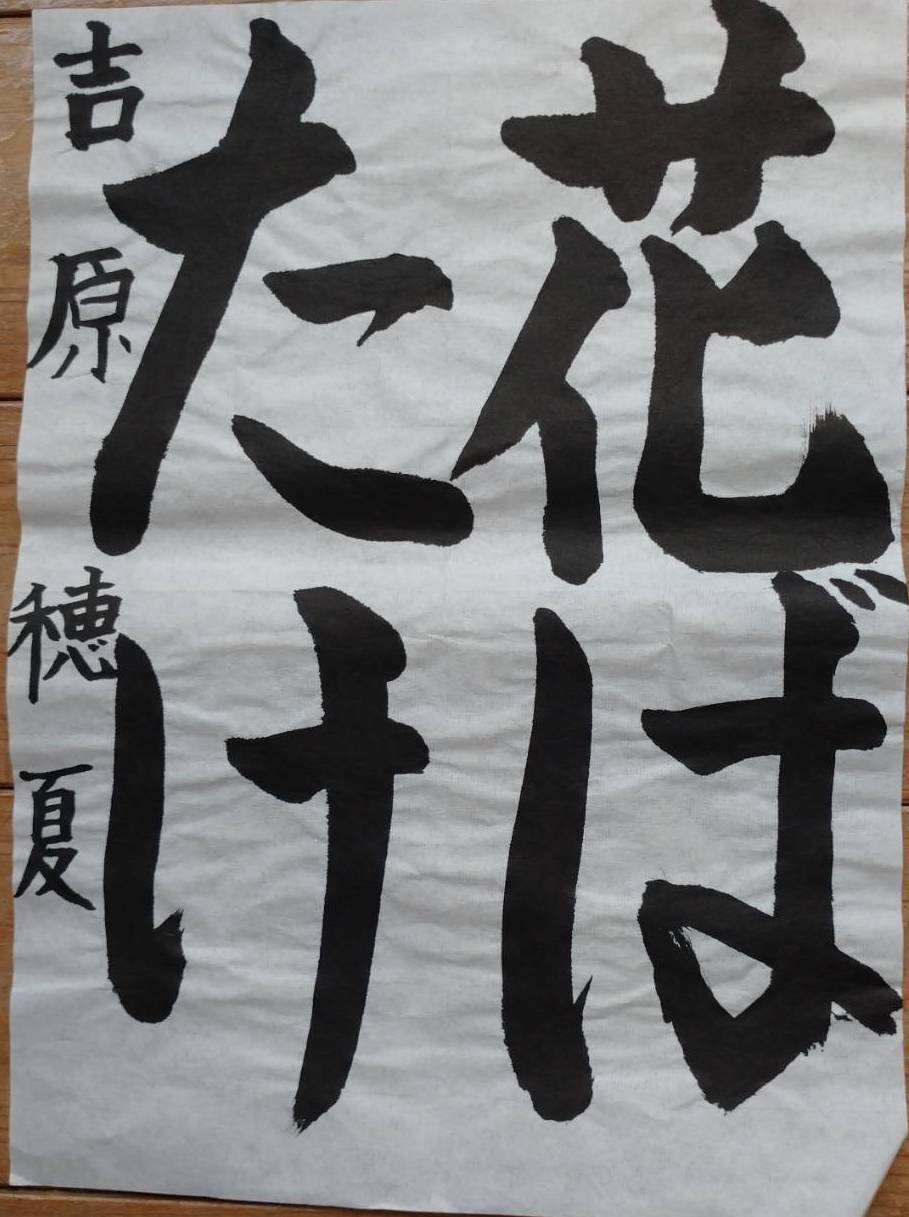 花ば
たけ
吉原穂夏